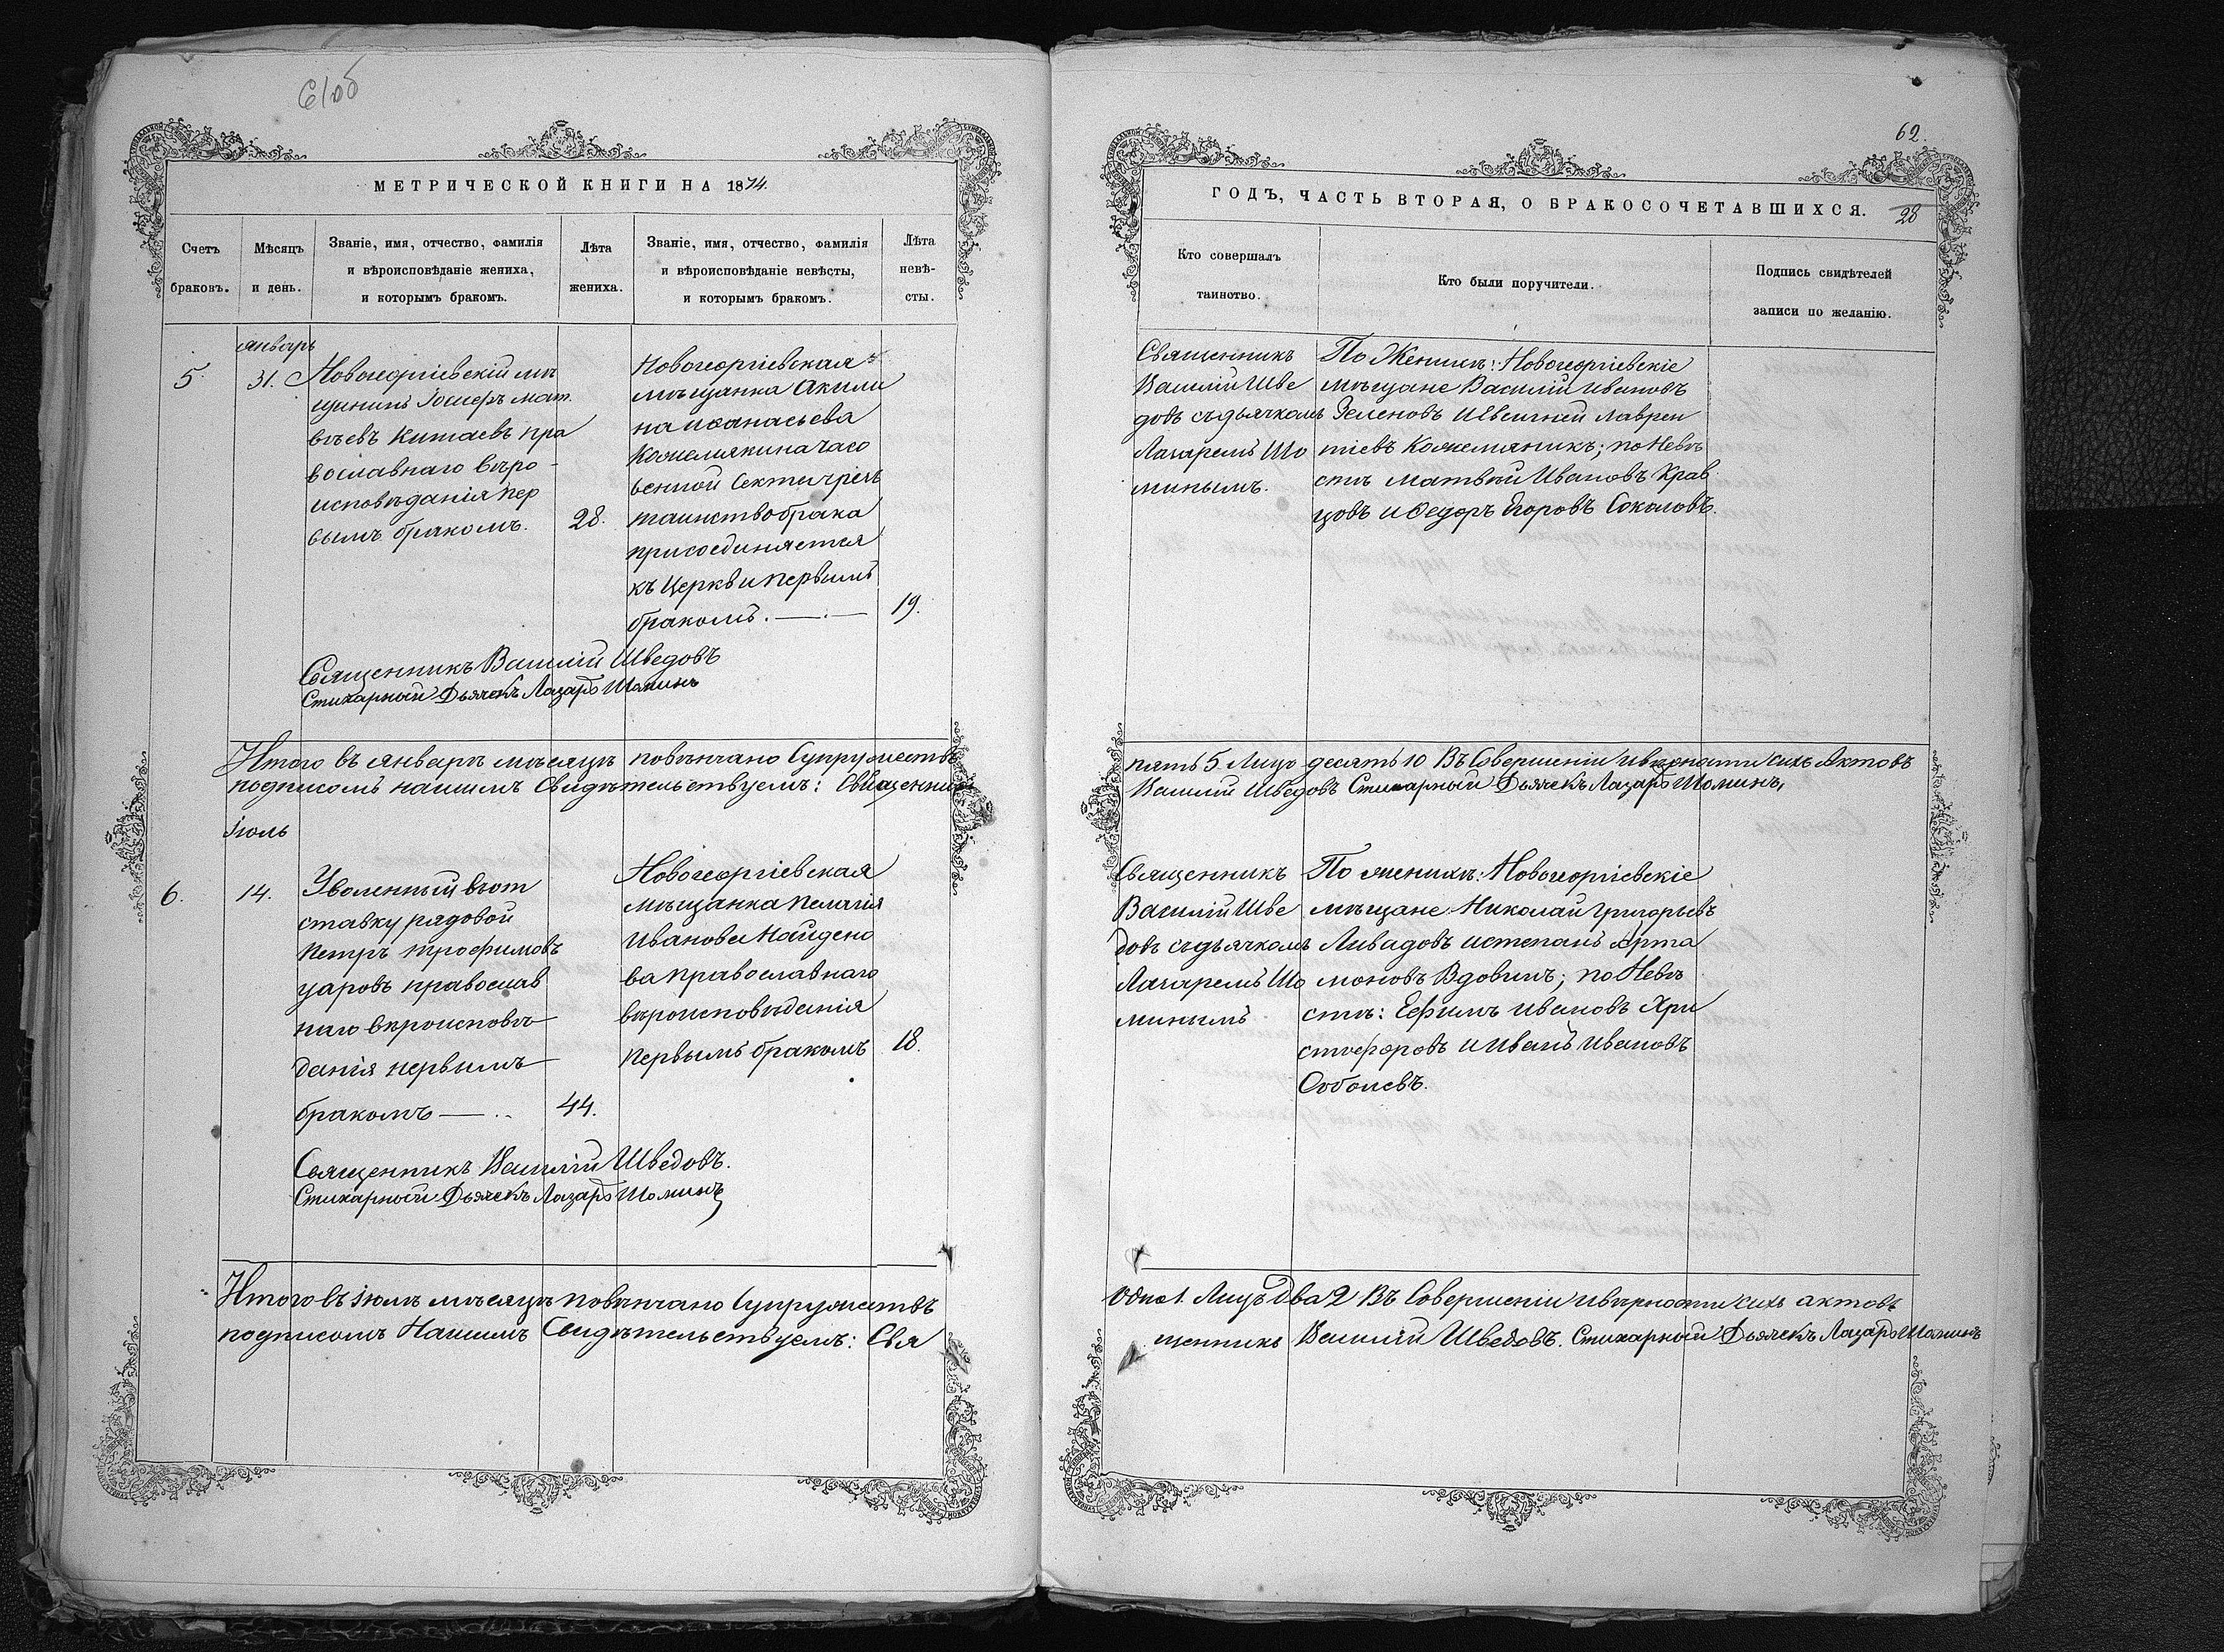 61об
МЕТРИЧЕСКОЙ КНИГИ НА 1874.
Счетъ
браковъ.
Мѣсяцъ
и день.
Званіе, имя, отчество, фамилія
и вѣроисповѣданіе жениха,
и которымъ бракомъ.
Лѣта
жениха.
Званіе, имя, отчество, фамилія
и вѣроисповѣданіе невѣсты,
и которымъ бракомъ.
Лѣта
невѣ-
сты.
январь
5.
31.
Новогеоргіевскій мѣ
щанинъ мат
вѣевъ Китаевъ пра
вославнаго вѣро-
исповѣданія пер
вымъ бракомъ.
28.
Новогеоргіевская
мѣщанка Акили
на Афанасьева
Кожемякина часо
венной Секты чрезъ
таинство брака
присоединяется
къ Церкви первымъ
бракомъ.
19.
Священникъ Василій Шведовъ
Стихарный Дьячекъ Лазарь Шоминъ
Итого въ январѣ мѣсяцѣ повѣнчано Супружествъ
подписомъ нашимъ Свидѣтельствуемъ: Священникъ
Іюль
6.
14.
Уволенный въ от
ставку рядовой
Петръ Трофимовъ
царовъ православ
наго вѣроисповѣ
данія первымъ
бракомъ
44.
Новогеоргіевская
мѣщанка Пелагія
Иванова Найдено
ва православнаго
вѣроисповѣданія
первымъ бракомъ
18.
Священникъ Василій Шведовъ.
Стихарный Дьячекъ Лазарь Шоминъ
Итого въ Іюлѣ мѣсяцѣ повѣнчано Супружествъ
подписомъ Нашимъ Свидѣтельствуемъ: Свя
62.
28
ГОДЪ, ЧАСТЬ ВТОРАЯ, О БРАКОСОЧЕТАВШИХСЯ.
Кто совершалъ
таинство.
Кто были поручители.
Подпись свидѣтелей
записи по желанію.
Священникъ
Василій Шве
довъ съ дьячкомъ
Лазаремъ Шо
минымъ.
По Женихѣ: Новогеоргіевскіе
мѣщане Василій Ивановъ
Зеленовъ и Евсигней Лаврен
тіевъ Кожемяникъ; по Невѣ
стѣ Матвѣй Ивановъ Крав
цовъ и Федоръ Егоровъ Соколовъ.
пять 5 Лицъ десять 10 Въ Совершеніи и вѣрности сихъ Актовъ
Василій Шведовъ Стихарный Дьячекъ Лазарь Шоминъ,
Священникъ
Василій Шве
довъ съ дьячкомъ
Лазаремъ Шо
минымъ
По женихѣ: Новогеоргіевскіе
мѣщане Николай Григорьевъ
Ливадовъ и Степанъ Арта
моновъ Вдовинъ; по Невѣ
стѣ: Ефимъ Ивановъ Хри
стофоровъ и Иванъ Ивановъ
Соболевъ.
Одно 1. Лицъ Два 2 Въ Совершеніи и вѣрности сихъ актовъ
щенникъ Василій Шведовъ. Стихарный Дьячекъ Лазарь Шоминъ